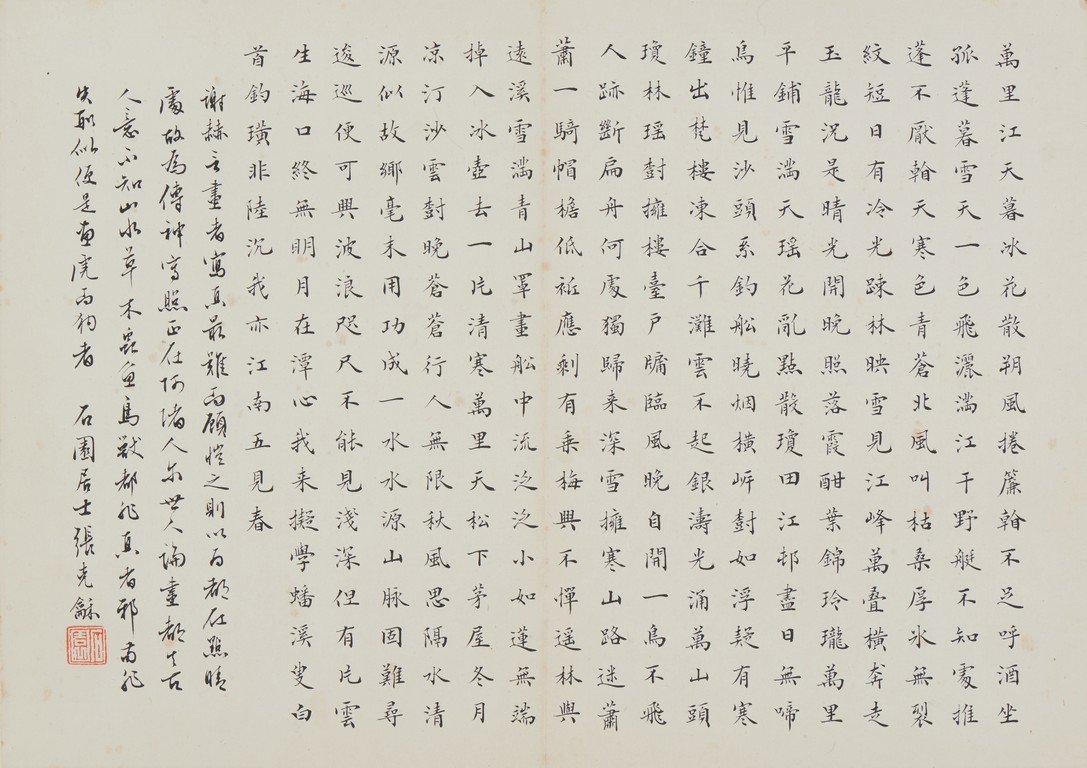 萬里江天暮冰花散朔風捲簾翰不足呼酒坐
孤蓬暮雪天一色飛灑滿江干野艇不知處推
蓬不厭翰天寒色青蒼北風叫枯桑厚氷無裂
紋短日有泠光踈林映雪見江峰萬疊橫奔走
玉龍況是晴光開晚照落霞酣葉錦玲瓏萬里
平鋪雪滿天瑶花亂點散瓊田江邨盡日無啼
鳥惟見沙頭系釣船曉烟橫岸樹如浮疑有寒
鐘出梵樓凍合千灘雲不起銀濤光涌萬山頭
瓊林瑶樹擁樓臺戶牖臨風晚自開一鳥不飛
人跡斷扁舟何處獨歸来深雪擁寒山路迷蕭
蕭一騎帽檐低袛應剩有乗梅興不憚遥林與
遠溪雪滿青山罩畫船中流泛泛小如蓮無端
掉入冰壺去一片清寒萬里天松下茅屋冬月
凉汀沙雲樹晚蒼蒼行人無限秋風思隔水清
源似故鄉毫末用功成一水水源山脉固難尋
逡巡便可興波浪咫尺不能見淺深但有片雲
生海口終無明月在潭心我来擬學蟠溪叟白
首釣璜非陸沉我亦江南五見春
謝赫言畫者寫真最難而顧愷之則以為都在點睛
處故為傳神寫照正在阿堵人尔世人論畫都失古
人意不知山水草木昆魚鳥獸都非真者邪苟非
失形似便是畫虎而狗者 石園居士張克龢
石園